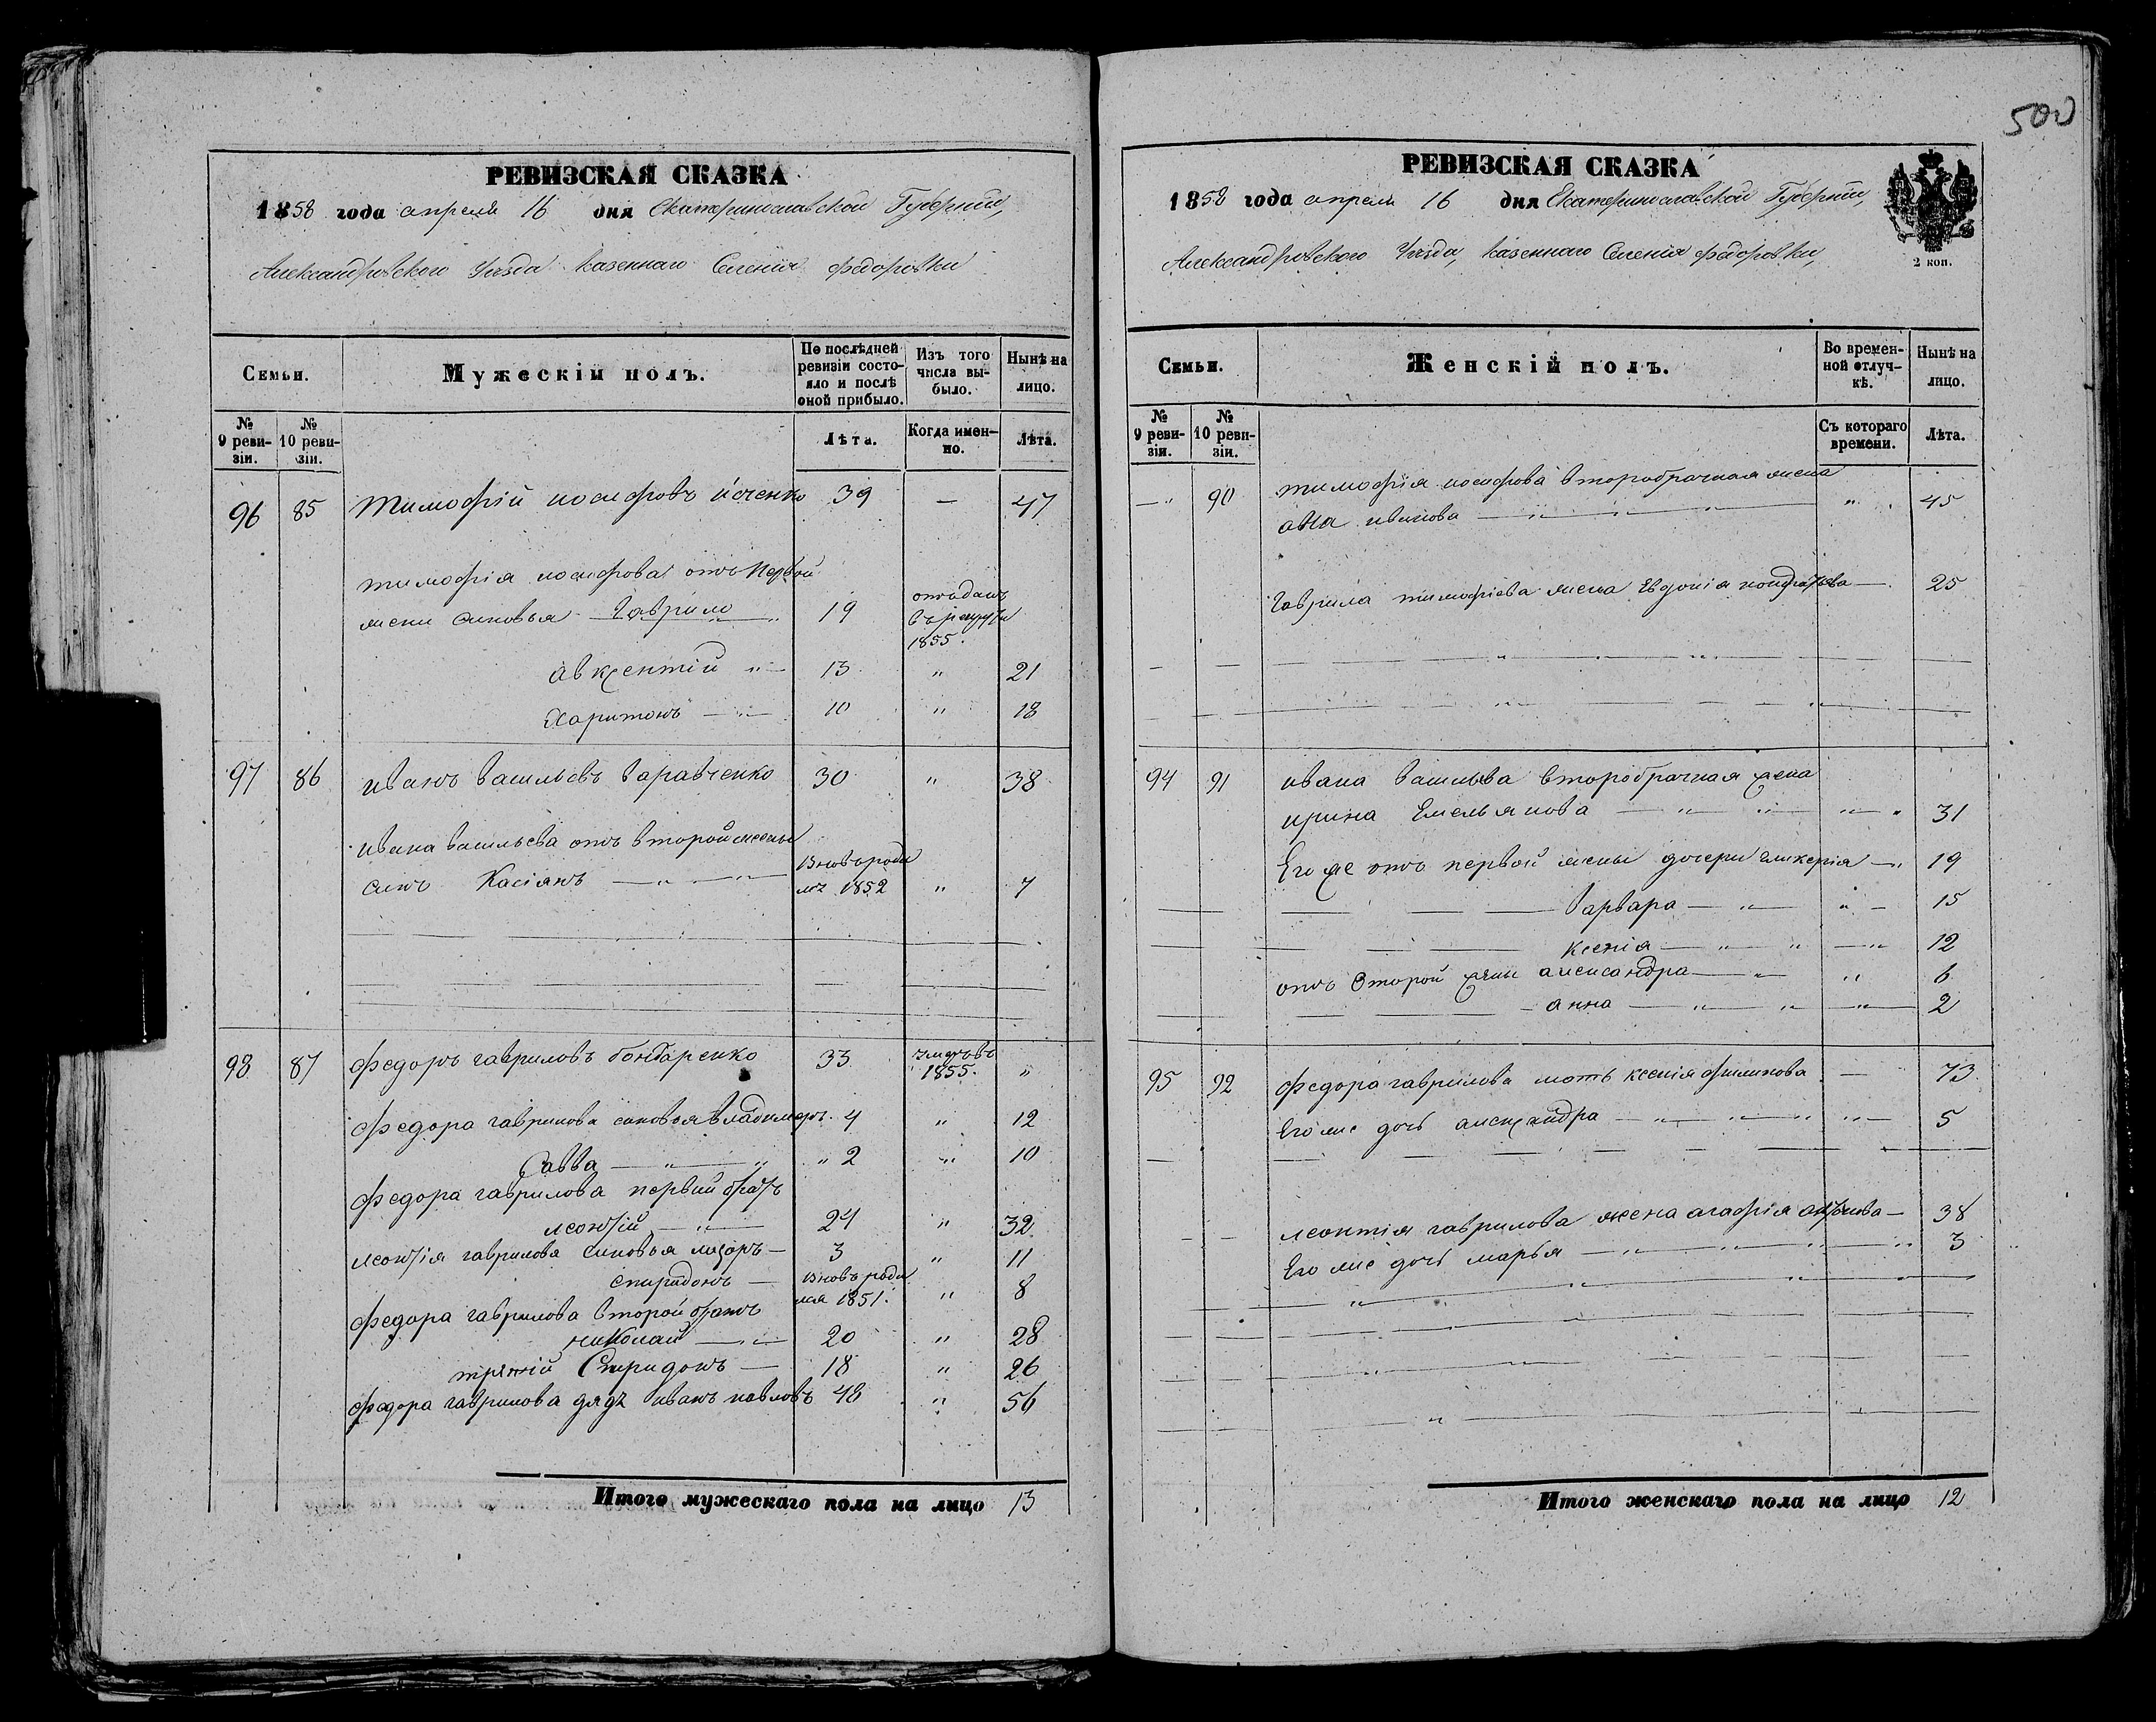 500
РЕВИЗСКАЯ СКАЗКА
1858 года апреля 16 дня Екатеринославской Губернии,
Александровского Уѣзда казеннаго Селенія федоровки
Семьи.
Мужескій полъ.
По послѣдней ревизіи состояло и послѣ оной прибыло.
Изъ того числа выбыло.
Нынѣ на лицо.
№ 9 ревизіи.
№ 10 ревизіи.
Лѣта.
Когда именно.
Лѣта.
96 85 Тимофій иосифовъ 39 — 47
тимофія иосифова отъ первой
жени синовья Гаврило 19 отъданъ въ рекруты 1855.
авксентій „ 13 „ 21
Харитонъ „ 10 „ 18
97 86 иванъ васильевъ Варавченко 30 „ 38
ивана васильева отъ второй жены
синъ Касіянъ вновь родилъ 1852 „ 7
98 87 федоръ гавриловъ бондаренко 33 умеръ въ 1855. „
федора гаврилова синовья владимеръ 4 „ 12
Савва „ 2 „ 10
федора гаврилова первий братъ
леонтій 24 „ 32
леонтія гаврилова синовья лазарь 3 „ 11
спиридонъ вновь родился 1851. „ 8
федора гаврилова второй братъ
николай 20 „ 28
третій Спиридонъ 18 „ 26
федора гаврилова дядя иванъ павловъ 48 „ 56
Итого мужескаго пола на лицо 13
РЕВИЗСКАЯ СКАЗКА
1858 года апреля 16 дня Екатеринославской Губернии,
Александровского Уѣзда, казеннаго Селенія федоровки,
2 коп.
Семьи.
Женскій полъ.
Во временной отлучкѣ.
Нынѣ на лицо.
№ 9 ревизіи.
№ 10 ревизіи.
Съ котораго времени.
Лѣта.
— „ 90 тимофія иосифова второбрачная жена
ивановa „ 45
Гаврила тимофіева жена Евдокія кондратьева — 25
94 91 ивана васильева второбрачная жена
ирина Емельянова „ 31
Его же отъ первой жены дочери гликерія „ 19
варвара „ 15
ксенія „ 12
отъ второй жены александра „ 6
анна „ 2
95 92 федора гаврилова мать ксенія филипова — 73
Его же дочь александра „ 5
леонтія гаврилова жена агафія — 38
Его же дочь марья „ 3
Итого женскаго пола на лицо 12